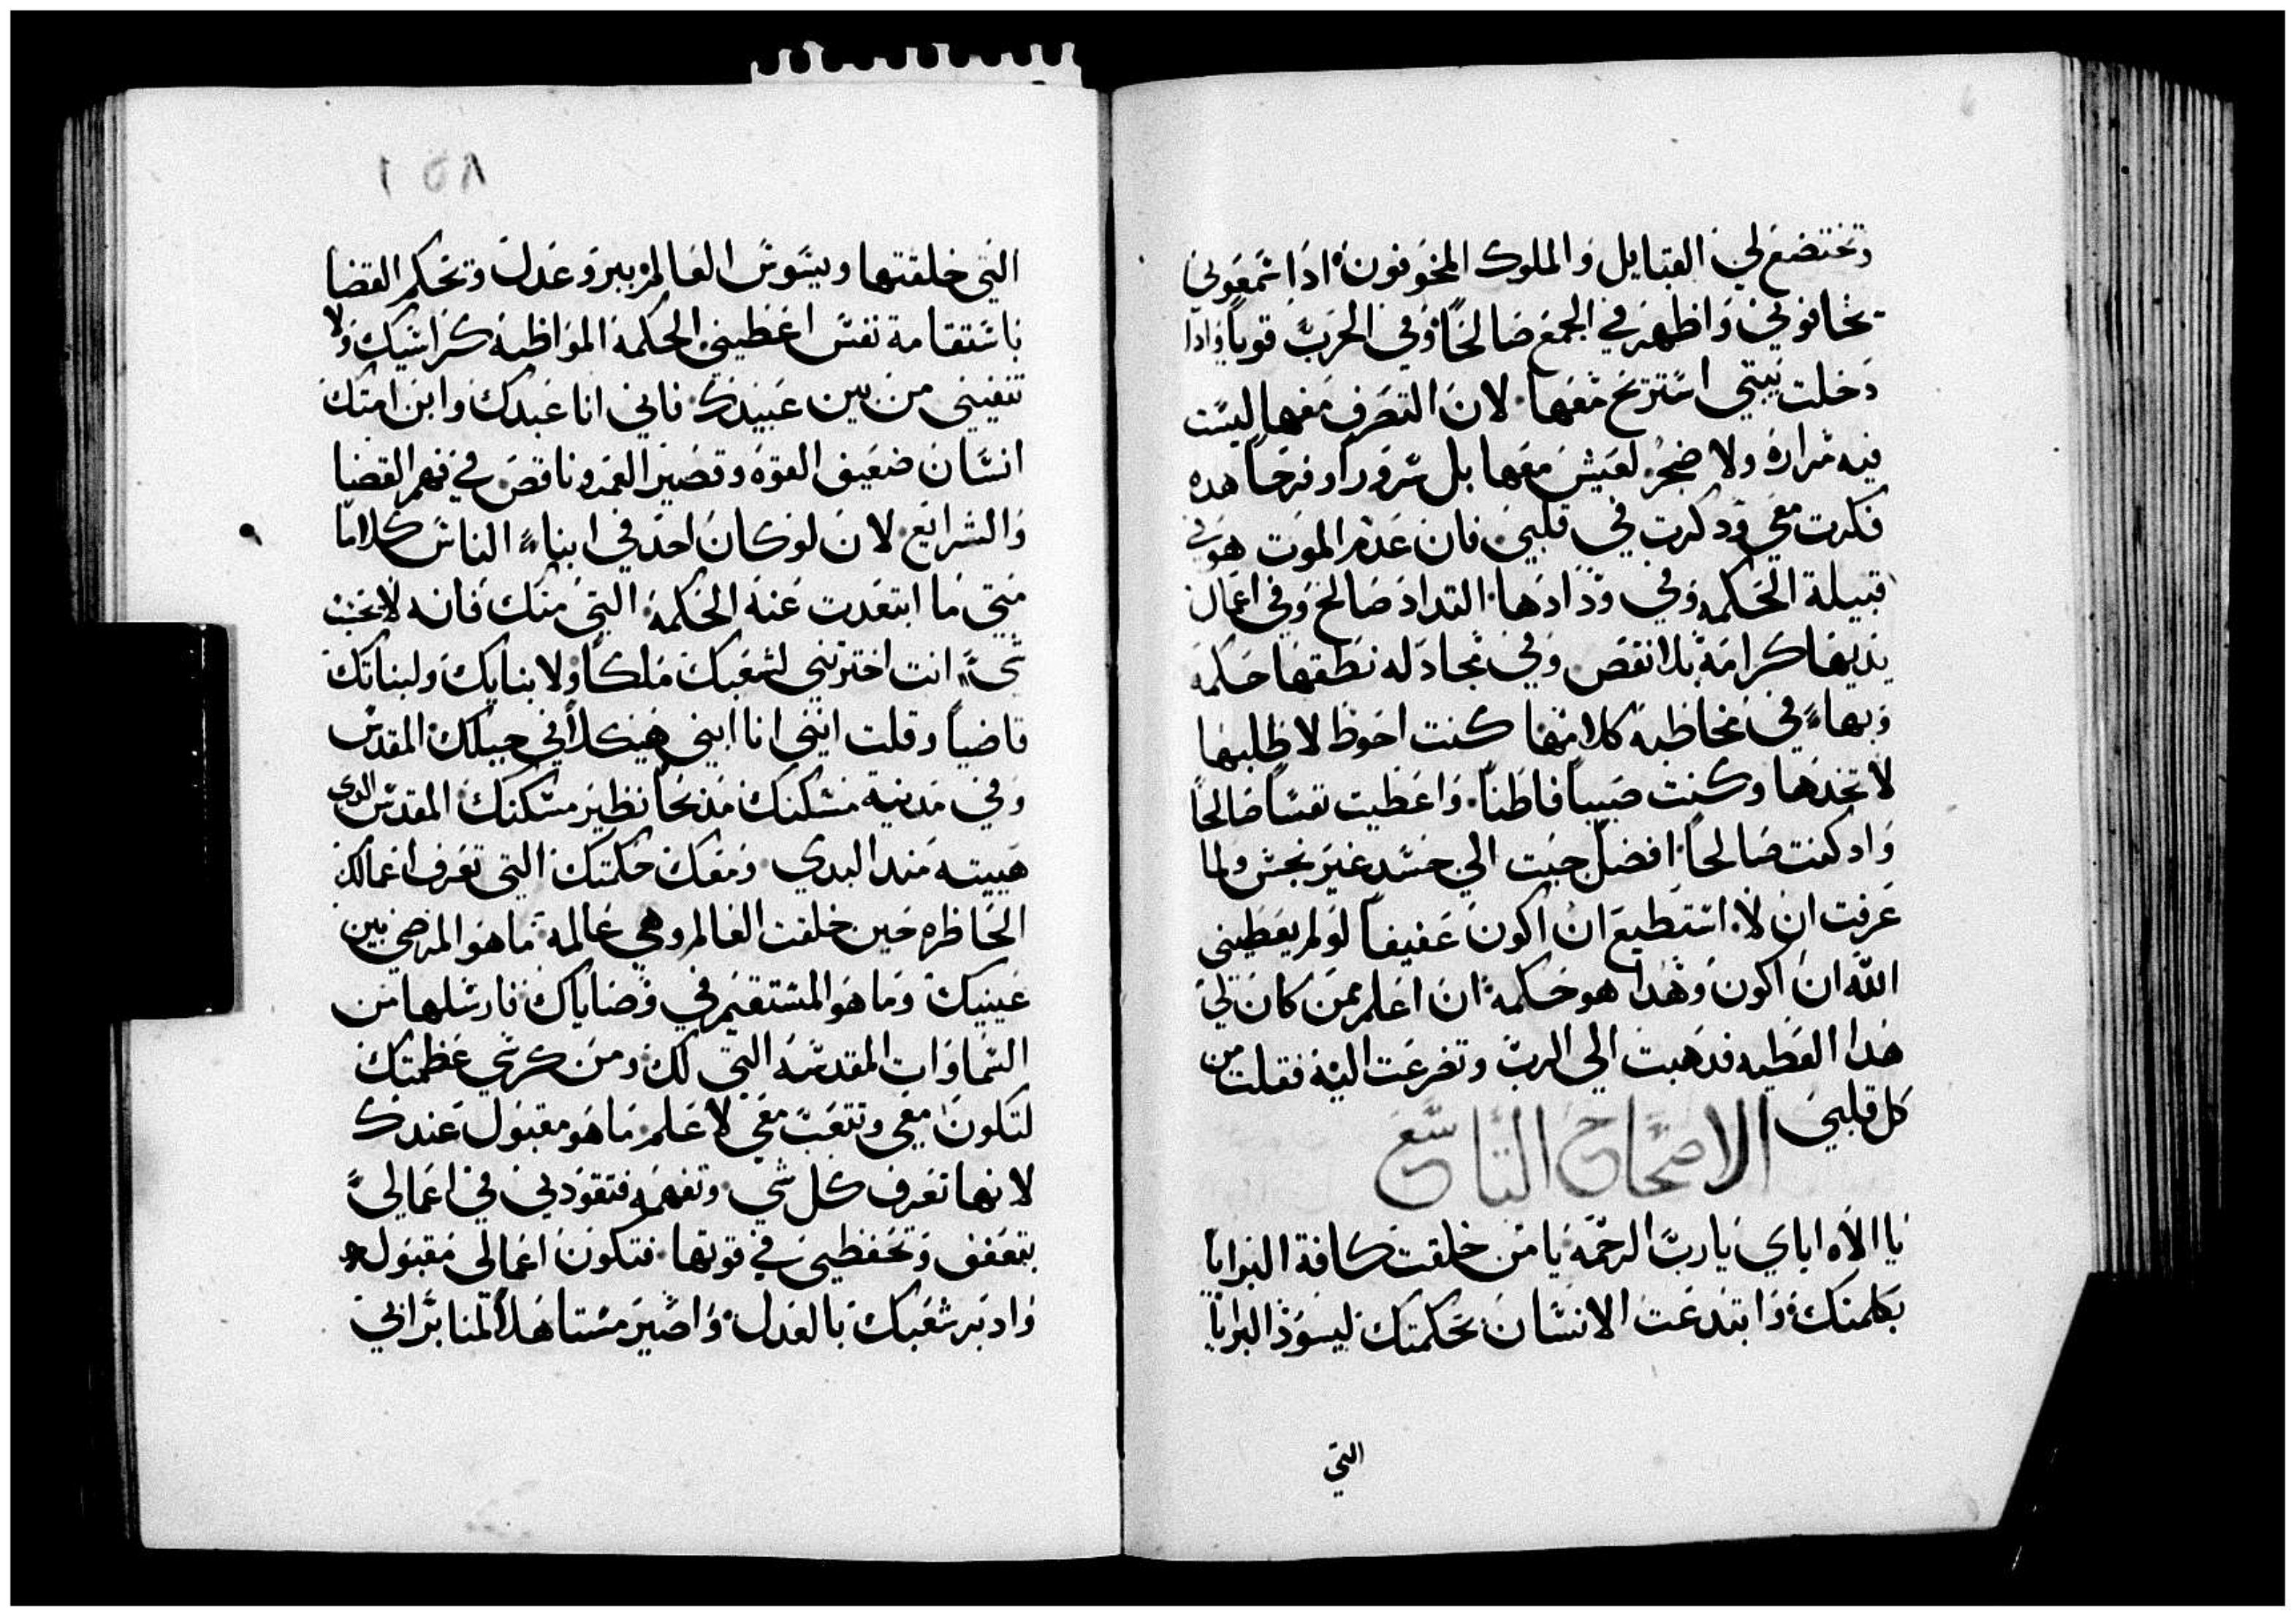 وتختضع لي القبايل والملوك المخوفون اذا سمعوني
يخافوني واظهر في الجمع صالحاً وفي الحرب قوياً واذا
دخلت بيتي استريح معها لان التصرف معها ليست
فيه مرارة ولا ضجر لعيش معها بل سروراً وفرحاً هده
فكرت معي ودكرت في قلبي فان عدم الموت هو في
قبيلة الحكمه وفي ودادها التداد صالح وفي اعمال
يديها كرامة بلا نقص وفي مجادله نطقها حكمه
وبهاء في مخاطبة كلامها كنت احوط لاطلبها
لاتخدها وكنت صبياً فاطناً واعطيت نفساً صالحاً
واد كنت صالحاً افضل جيت الي جسد غير نجس ولما
عرفت ان لا استطيع ان اكون عفيفاً لو لم يعطيني
الله ان اكون وهدا هو حكمه ان اعلم ممن كان لي
هدا العطيه فدهبت الي الرب وتضرعت اليه فقلت من
كل قلبي
الاصحاح التاسع
يا الاه اباي يا رب الرحمه يا من خلقت كافة البرايا
بكلمتك وابتدعت الانسان بحكمتك ليسود البرايا
التي
١٥٨
التي خلقتها ويسوس العالم ببر وعدل وتحكم القضا
باستقامة نفس اعطيني الحكمه المواظبه كراسيك ولا
تنفيني من بين عبيدك فاني انا عبدك وابن امتك
انسان ضعيف القوه وقصير العمر وناقص في فهم القضا
والشرايع لان لو كان احد في ابناء الناس كلاما
متي ما ابتعدت عنه الحكمه التي منك فانه لا يحسب
شيء انت اخترتني لشعبك ملكاً ولابنايك ولبناتك
قاضياً وقلت انني انا ابني هيكلاً في جبلك المقدس
وفي مدينة مسكنك مدبحاً نظير مسكنك المقدس الدي
هييته مند البدي ومعك حكمتك التي تعرف اعمالك
الحاظره حين خلقت العالم وهي عالمه ما هو المرضي بين
عينيك وما هو المستقيم في وصاياك فارسلها من
السماوات المقدسه التي لك ومن كرسي عظمتك
لتكون معي وتتعب معي لاعلم ما هو مقبول عندك
لانها تعرف كل شي وتفهمه فتقودني في اعمالي
بتعفف وتحفظني في قوتها فتكون اعمالي مقبوله
وادبر شعبك بالعدل واصير مستاهلاً لمنابر ابي